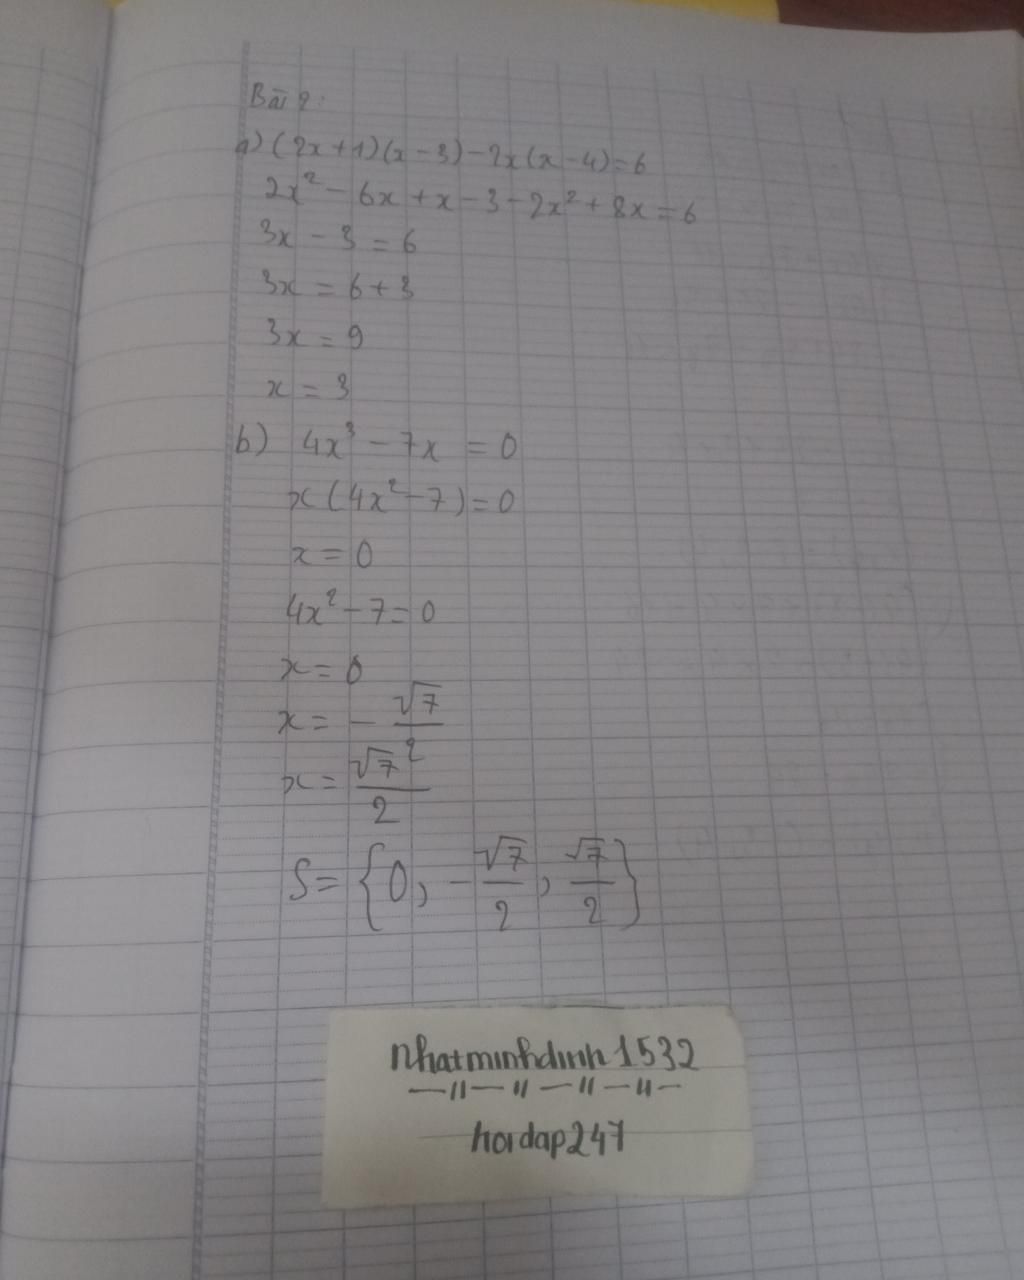 Bài 2:
a) (2x+1)(x-3)-2x(x-4)=6
2x² - 6x + x - 3 - 2x² + 8x = 6
3x - 3 = 6
3x = 6+3
3x = 9
x = 3
b) 4x³ - 7x = 0
x(4x²-7)=0
x = 0
4x²-7=0
x = 0
x = -√7/2
x = √7/2
S = {0, -√7/2, √7/2}
nhatminhdinh1532
—〃—〃—〃—〃—
hoidap247